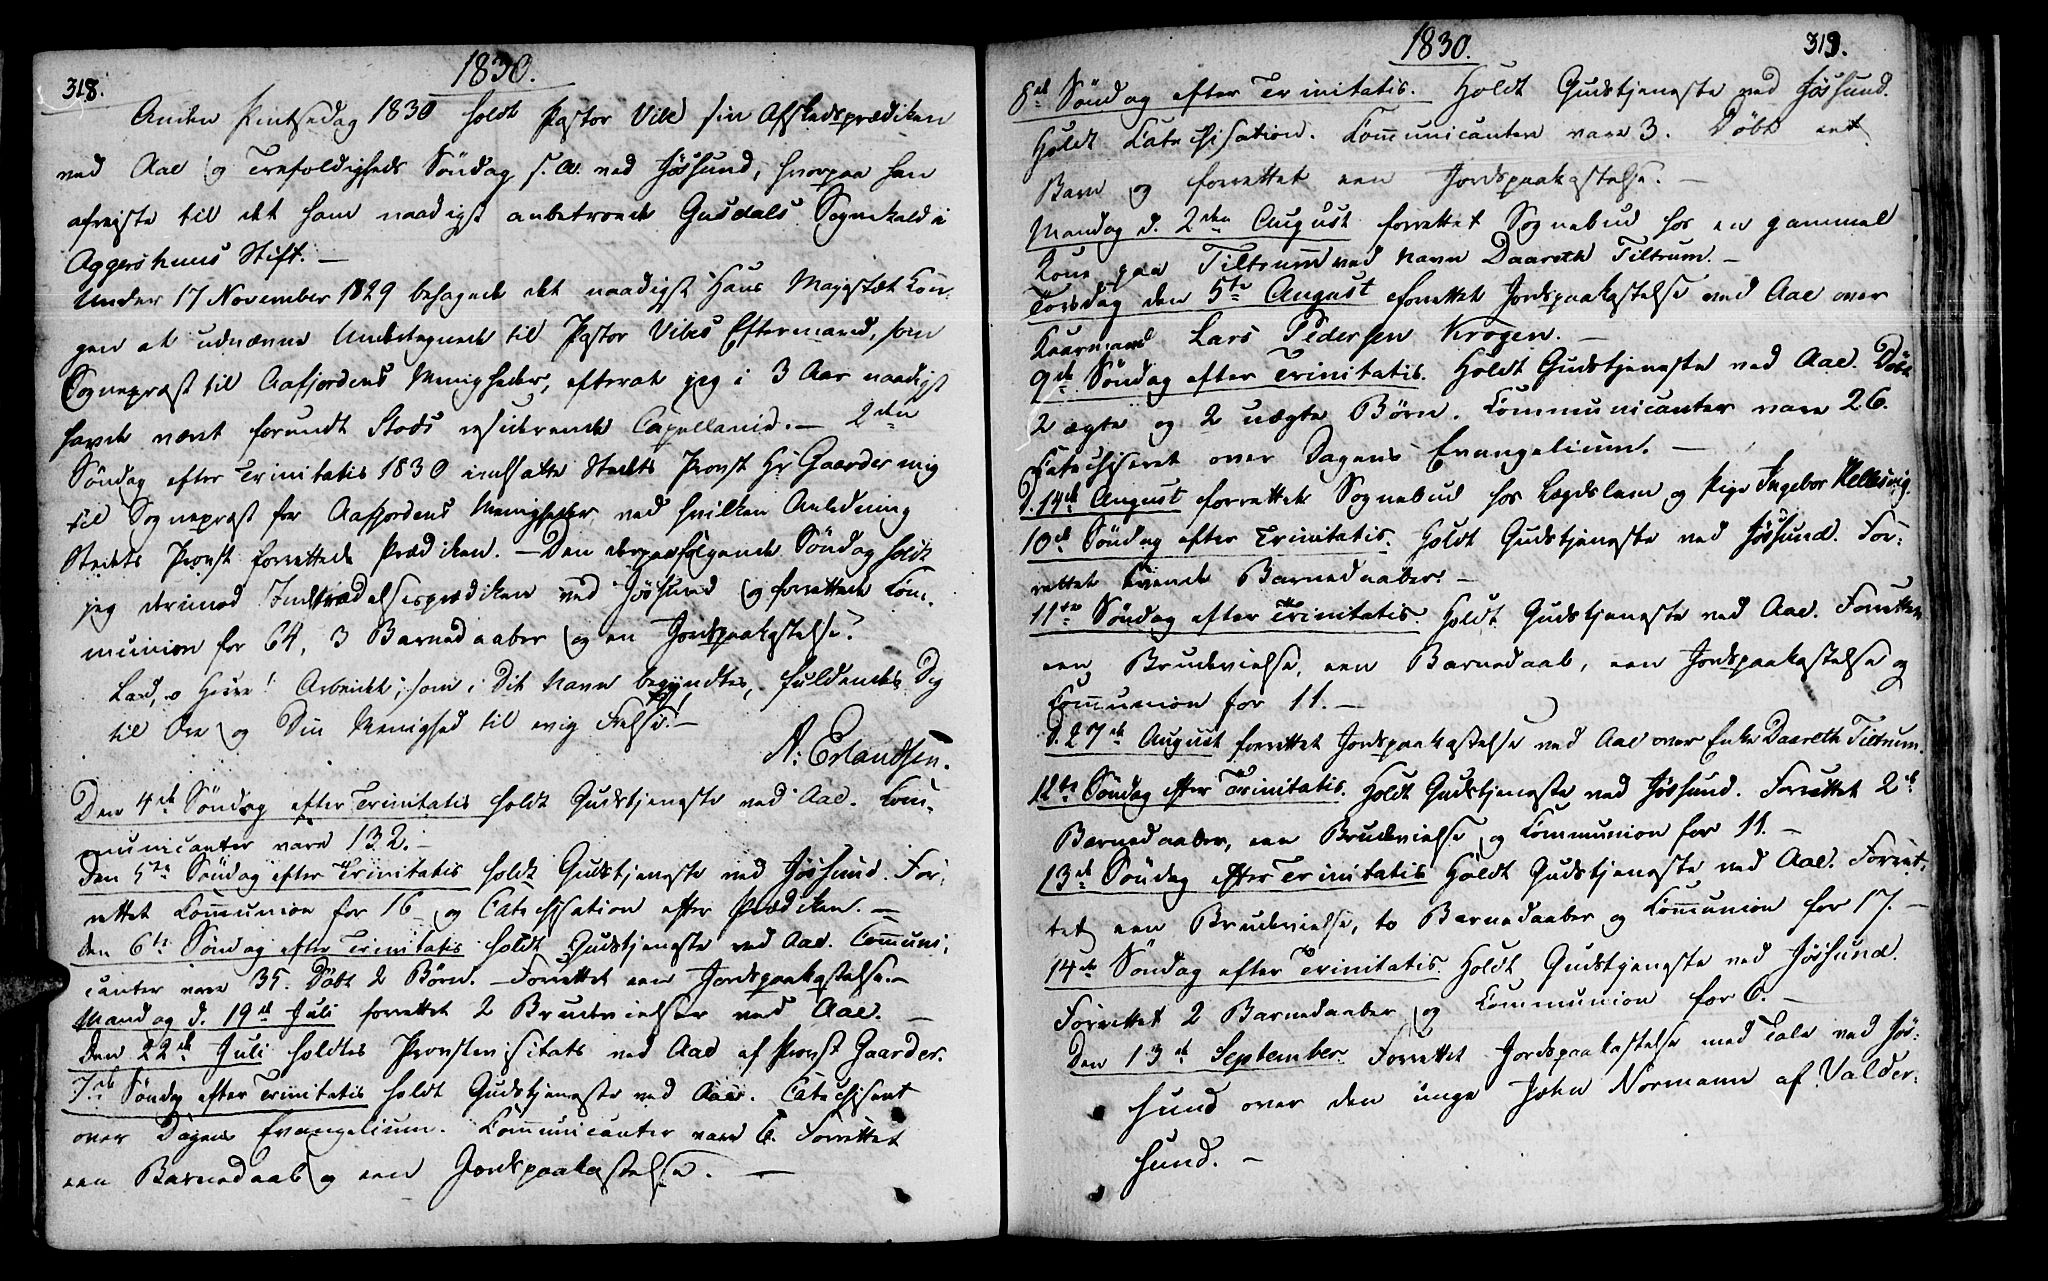 318.
1830.
Anden Pintsedag 1830 holdt Pastor Vibe sin Afskedsprædiken
ved Aae og Trefoldigheds Søndag s. A. ved Jøssund, hvorpaa han
afreiste til det ham naadigst anbetroede Gusdals Sognekald i
Aggershuus Stift. —
Under 17 November 1829 behagede det naadigst Hans Majestæt Kon-
gen at udnævne Undertegnede til Pastor Vibes Eftermand, som
Sognepræst til Aafjordens Menigheder, efterat jeg i 3 Aar naadigst
havde været forundt Stods residerende Capellanie. — 2den
Søndag efter Trinitatis 1830 indsatte Stedets Provst Hr Gaarder mig
til Sognepræst for Aafjordens Menigheder, ved hvilken Anledning
Stedets Provst forrettede Prædiken. — Den derpaafølgende Søndag holdt
jeg derimod Indtrædelsesprædiken ved Jøssund og forrettede Com-
munion for 64, 3 Barnedaaber og en Jordpaakastelse.
Lad, o Herre! Arbeidet, som i Dit Navn begyndtes, fuldendes Dig
til Ære og Din Menighed til evig Frelse! —
A. Erlandsen.
Den 4de Søndag efter Trinitatis holdt Gudstjeneste ved Aae. Com-
municanter vare 132. —
Den 5te Søndag efter Trinitatis holdt Gudstjeneste ved Jøssund. For-
rettet Communion for 16 og Catechisation efter Prædiken. —
Den 6te Søndag efter Trinitatis holdt Gudstjeneste ved Aae. Communi-
canter vare 35. Døbt 2 Børn. — Forrettet een Jordspaakastelse. —
Mandag d. 19de Juli forrettet 2 Brudevielser ved Aae. —
Den 22de Juli holdtes Provstevisitats ved Aae af Provst Gaarder.
7de Søndag efter Trinitatis holdt Gudstjeneste ved Aae. Catechiseret
over Dagens Evangelium. Communicanter vare 6. Forrettet
een Barnedaab og een Jordspaakastelse. —
1830.
319.
8de Søndag efter Trinitatis. Holdt Gudstjeneste ved Jøssund.
Holdt Catechisation. Communicanter vare 3. Døbt eet
Barn og forrettet een Jordspaakastelse. —
Mandag d. 2den August forrettet Sognebud hos en gammel
Kone paa Tiltrum ved Navn Daareth Tiltrum. —
Torsdag den 5te August forrettet Jordspaakastelse ved Aae over
Lars Pedersen Krogen. —
9de Søndag efter Trinitatis. Holdt Gudstjeneste ved Aae. Døbt
2 ægte og 2 uægte Børn. Communicanter vare 26.
Catechiseret over Dagens Evangelium. —
D. 14de August forrettet Sognebud hos Lægdslem og Pige Ingebor Hellesvig.
10de Søndag efter Trinitatis. Holdt Gudstjeneste ved Jøssund. For-
rettet tvende Barnedaaber. —
11te Søndag efter Trinitatis. Holdt Gudstjeneste ved Aae. Forrettet
een Brudevielse, een Barnedaab, een Jordspaakastelse og
Communion for 11. —
D. 27de August forrettet Jordspaakastelse ved Aae over Enke Daareth Tiltrum.
12te Søndag efter Trinitatis. Holdt Gudstjeneste ved Jøssund. Forrettet 2de
Barnedaaber, een Brudevielse og Communion for 11. —
13de Søndag efter Trinitatis Holdt Gudstjeneste ved Aae. Forret-
tet een Brudevielse, to Barnedaaber og Communion for 17. —
14de Søndag efter Trinitatis. Holdt Gudstjeneste ved Jøssund.
Forrettet 2 Barnedaaber og Communion for 6. —
Den 13de September Forrettet Jordspaakastelse med Tale ved Jøs-
sund over den unge John Normann af Valder-
sund. —